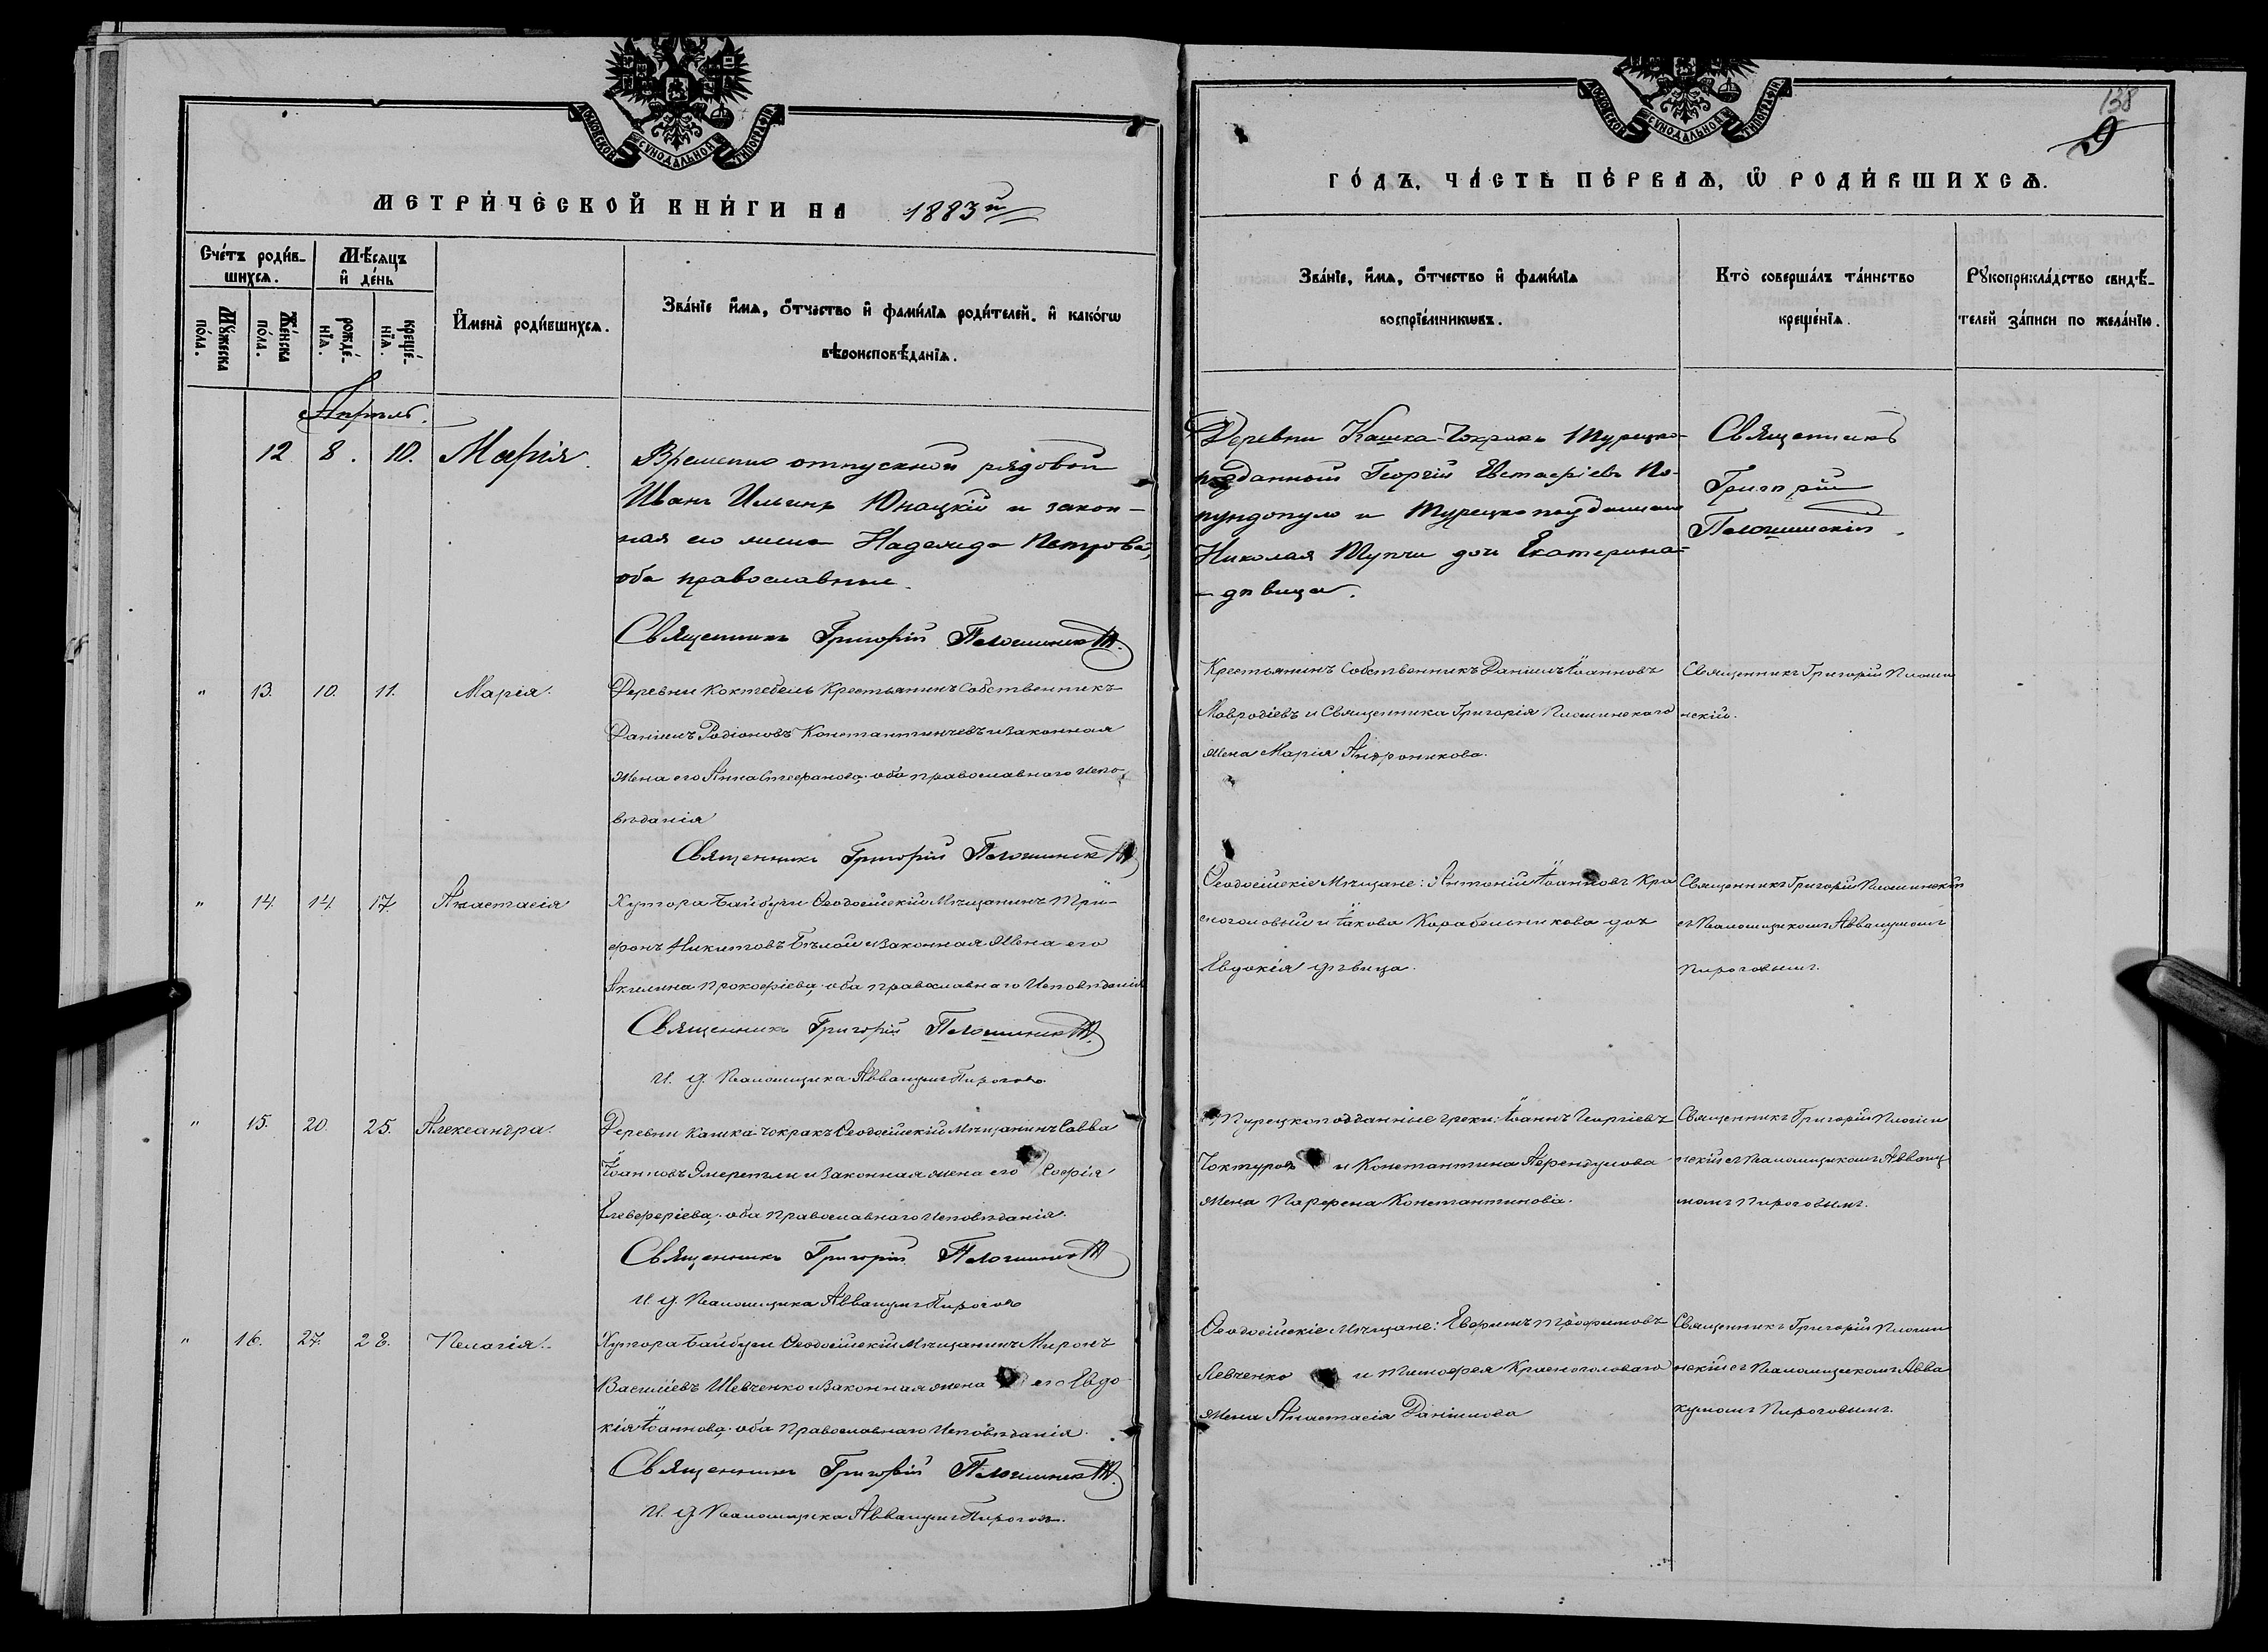 МОСКОВСКОЙ СѴНОДАЛЬНОЙ ТИПОГРАФІИ
МЕТРИ́ЧЕСКОЙ КНИ́ГИ НА 1883й
Сче́тъ роди́в-
шихсѧ.
Мꙋ́жеска
по́ла.
Же́нска
по́ла.
Мѣ́сѧцъ
и҆ де́нь
рожде́-
нїѧ.
креще́-
нїѧ.
И҆мена̀ роди́вшихсѧ.
Зва́нїе и҆́мѧ, ѻ҆́тчество и҆ фами́лїѧ роди́телей, и҆ како́гѡ
вѣроисповѣ́данїѧ.
Апрѣль.
12 8. 10. Марія.
Временно отпускной рядовой
Иванъ Ильинъ Юнацкій и закон-
ная его жена Надежда Петрова,
оба православные.
Священникъ Григорій
" 13. 10. 11. Марія.
Деревни Коктебель Крестьянинъ Собственникъ
Даніилъ Родіоновъ Константиневъ и законная
жена его Анна Стефанова, оба православнаго Испо-
вѣданія
Священникъ Григорій
" 14. 14. 17. Анастасія
Хутора Байбуги Ѳеодосійскій Мѣщанинъ Три-
фонъ Никитовъ Бѣлой и законная жена его
Акилина Прокофіева, оба православнаго Исповѣданія
Священникъ Григорій
И. д. Псаломщика Аввакумъ Пироговъ
" 15. 20. 25. Александра.
Деревни Кашка-Чокракъ Ѳеодосійскій Мѣщанинъ Савва
Іоанновъ Эмеретли и законная жена его Софія
Елевферіева, оба Православнаго Исповѣданія.
Священникъ Григорій
И. д. Псаломщика Аввакумъ Пироговъ
" 16. 27. 28. Пелагія.
Хутора Байбуги Ѳеодосійскій Мѣщанинъ Миронъ
Василіевъ Шевченко и законная жена его Евдо-
кія Іоаннова, оба Православнаго Исповѣданія.
Священникъ Григорій
И. д. Псаломщика Аввакумъ Пироговъ.
МОСКОВСКОЙ СѴНОДАЛЬНОЙ ТИПОГРАФІИ
138
9
ГО́ДЪ, ЧА́СТЬ ПЕ́РВАѦ, Ѽ РОДИ́ВШИХСѦ.
Зва́нїе, и҆́мѧ, ѻ҆́тчество и҆ фами́лїѧ
воспрїе́мникѡвъ.
Кто̀ соверша́лъ та́инство
креще́нїѧ.
Рꙋкоприкла́дство свидѣ́-
телей за́писи по жела́нїю.
Деревни Кашка-Чокракъ Турецко-
подданный Георгій Евстафіевъ По-
пундопуло и Турецкоподданнаго
Николая Тупчи дочь Екатерина-
- дѣвица.
Священникъ
Григорій
Крестьянинъ Собственникъ Даніилъ Іоанновъ
Мавродіевъ и Священника Григорія Плошинскаго
жена Марія Андроникова.
Священникъ Григорій Плоши
нскій.
Ѳеодосійскіе Мѣщане: Антоній Іоанновъ Кра
сноголовый и Іакова Карабельникова дочь
Евдокія дѣвица.
Священникъ Григорій Плошинскій
съ Псаломщикомъ Аввакумомъ
Пироговымъ.
Турецкоподданные греки: Іоаннъ Георгіевъ
и Константина
жена Константинова.
Священникъ Григорій Плоши
нскій съ Псаломщикомъ Авваку
момъ Пироговымъ.
Ѳеодосійскіе Мѣщане: Ефремъ Трофимовъ
Левченко и Тимофея Красноголоваго
жена Анастасія Даніилова
Священникъ Григорій Плоши
нскій съ Псаломщикомъ Авва
кумомъ Пироговымъ.